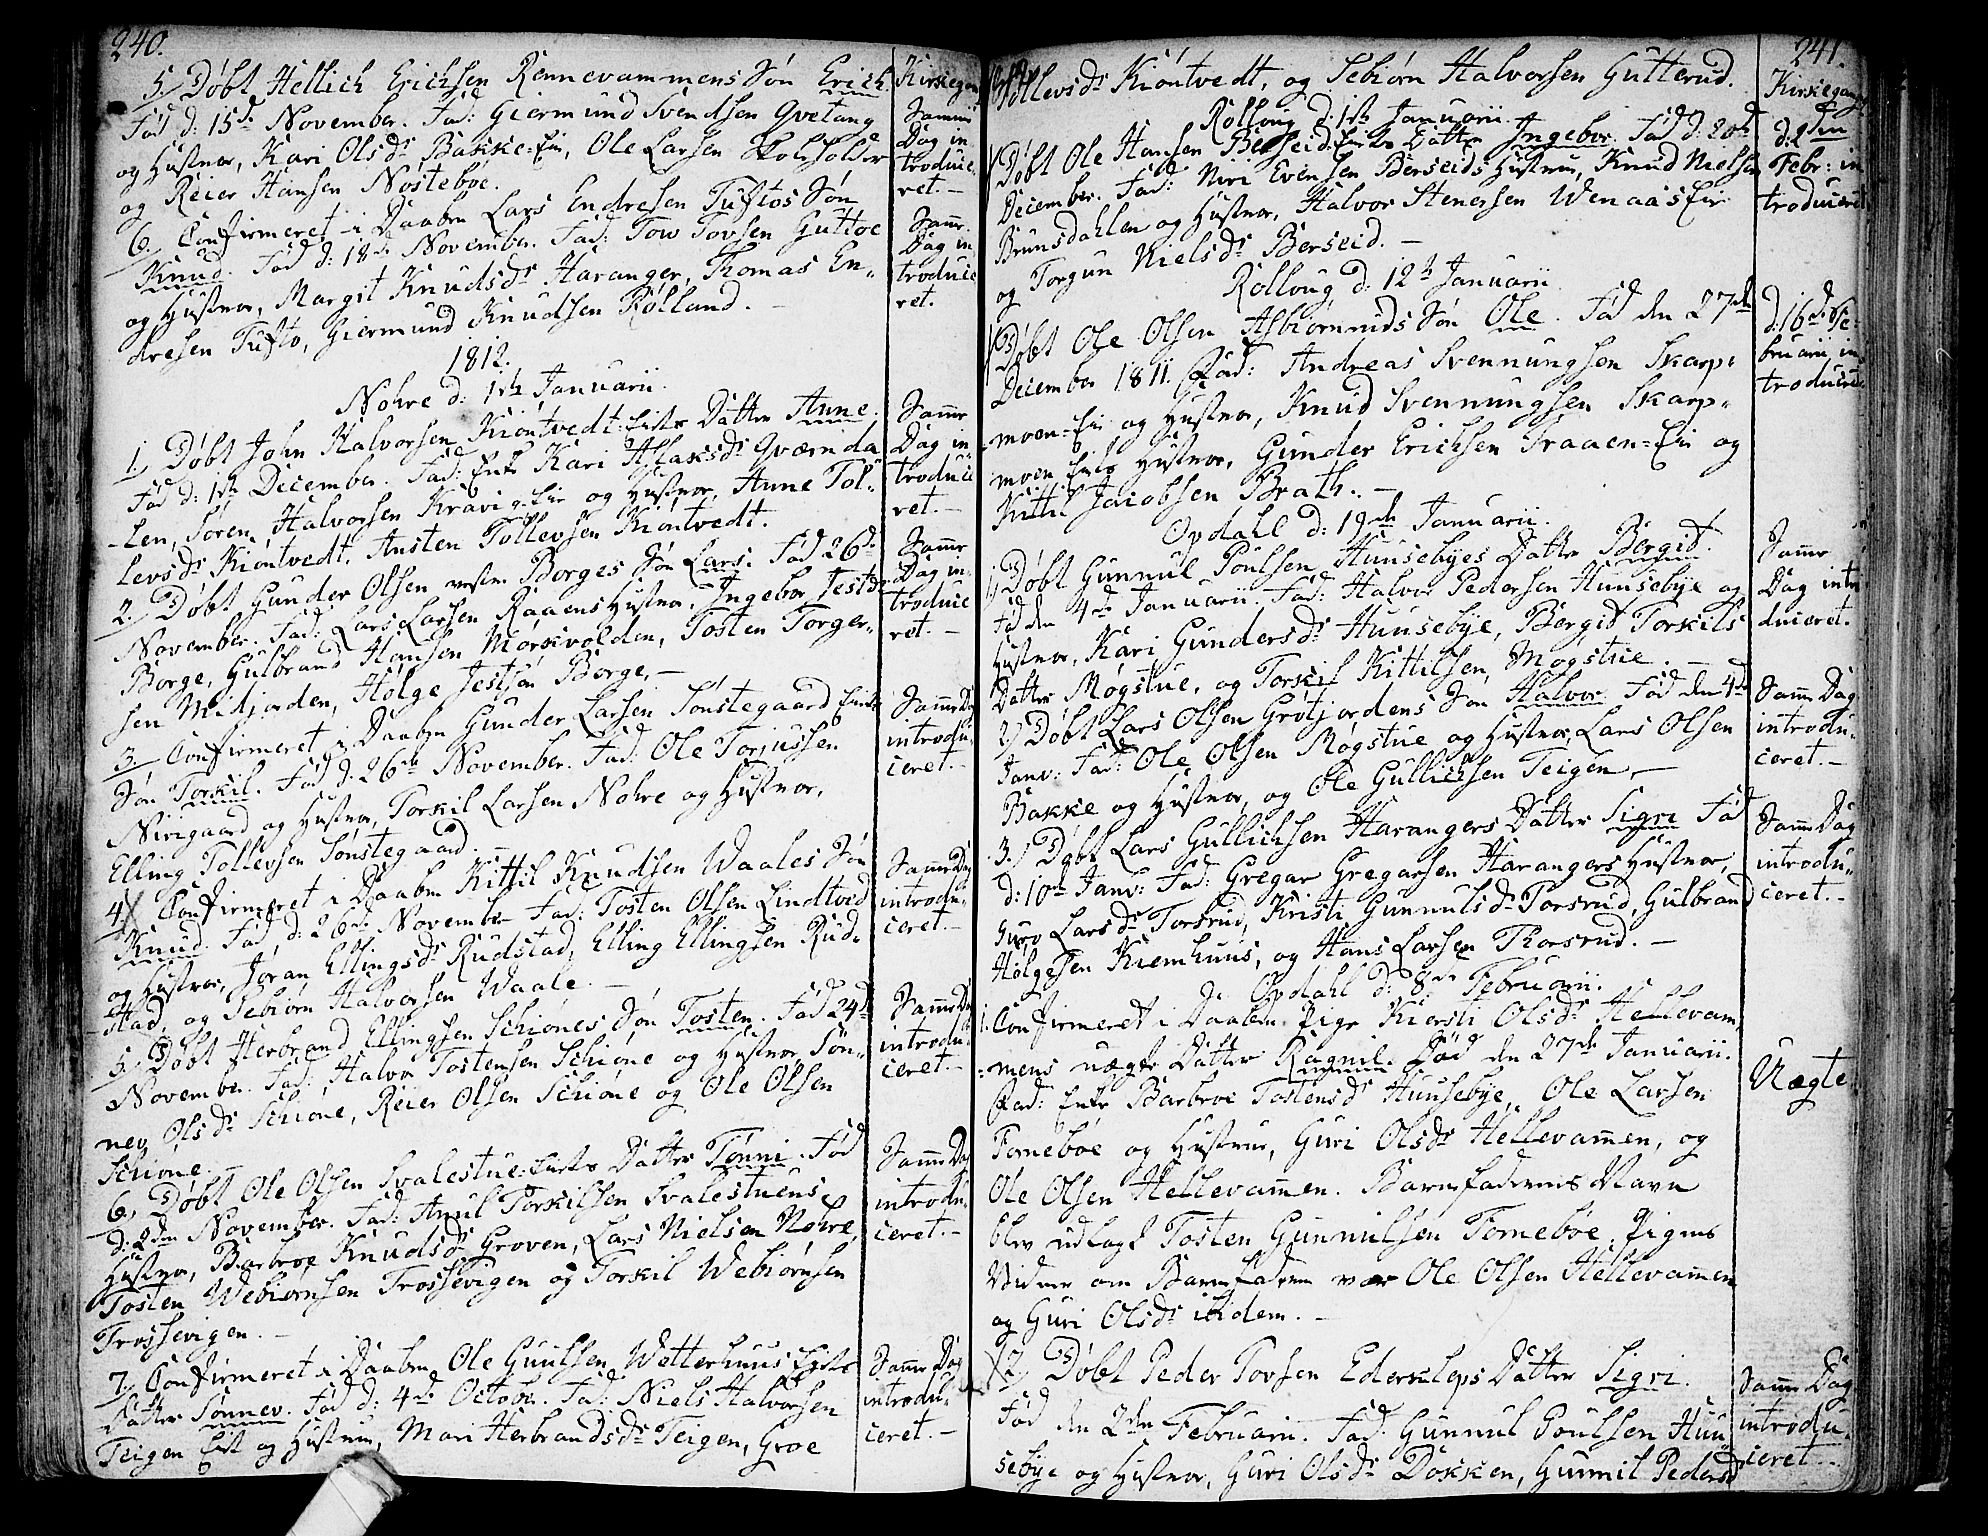 240.
5./ Døbt Hellich Erichsen Rennevammens Søn Erich.
Fød d: 15de November. Fad: Giermund Svendsen Qvetang
og Hustroe, Kari Olsdr Bakke-Eie, Ole Larsen Skoleholder
og Reier Hansen Nøstebøe.
6./ Confirmeret i Daaben Lars Endresen Tuftos Søn
Knud. Fød d: 18de November. Fad: Tow Tovsen Guttoe
og Hustroe, Margit Knudsdr Haranger, Thomas En-
dresen Tufto, Giermund Knudsen Rolland.
1812.
Nohre d: 1ste Januarii.
1./ Døbt John Halvorsen Kiöntvedt-Eiets Datter Anne.
Fød d: 1ste December. Fad: Enke Kari Aslaksdr Qværnda
-len, Søren Halvorsen Kravig-Eie og Hustroe, Anne Tol-
levsdr Kiöntvedt, Ansten Tollevsen Kiöntvedt.
2./ Døbt Gunder Olsen Borges Søn Lars. Fød 26de
November. Fad: Lars Larsen Raaens Hustroe, Ingebor Jestdr
Borge, Gulbrand Hansen Morkvolden, Tosten Torger-
sen Midjorden, Holge Jestsøn Borge.
3./ Confirmeret i Daaben Gunder Larsen Sønstegaard Eiets
Søn Torkil. Fød d: 26de November. Fad: Ole Torjussen
Nirigaard og Hustroe, Torkil Larsen Nohre og Hustroe,
Elling Tollevsen Sønstegaard.
4./ Confirmeret i Daaben Kittil Knudsen Waales Søn
Knud. Fød, d: 26de November. Fad: Tosten Olsen Lindtved
og Hustroe, Jøran Ellingsdr Rudstad, Elling Ellingsen Rud-
stad, og Sebiørn Halvorsen Waale.
5./ Døbt Herbrand Ellingsen Schiönes Søn Tosten. Fød 24de
November. Fad: Halvor Tostensen Schiöne og Hustroe, Søn-
nev Olsdr Schiöne, Reier Olsen Schiöne og Ole Olsen
Schiöne.
6./ Døbt Ole Olsen Svalestue-Eiets Datter Tønni. Fød
d: 2den November. Fad: Anul Torkilsen Svalestuens
Hustroe, Barbroe Knudsdr Groven, Lars Nielsen Nohre,
Tosten Webiørnsen Trossevigen og Torkil Webiørnsen
Trossevigen.
7./ Confirmeret i Daaben Ole Guulsen Wetterhuus Eiets
Datter Sønnev. Fød d: 4de Octobr. Fad: Niels Halvorsen
Teigen Eiet og Hustrue, Mari Herbrandsdr Teigen, Groe
Kirkegan
Samme
Dag in
troduce
ret.
Samme
Dag in
troduce
ret.
Samme
Dag in
troduce
ret.
Samme
Dag in-
troduce
ret.
Samme Dag
introdu-
ceret.
Samme Dag
introdu-
ceret.
Samme Dag
introdu-
ceret.
Samme Dag
introdu-
ceret.
Samme Dag
introdu-
ceret.
241.
Tollevsdr Kiöntvedt, og Sebiørn Halvorsen Gutterud.
Rolloug d: 1ste Januarii.
1) Døbt Ole Hansen Berseid-Eiets Datter Ingebor. Fød d: 20de
December. Fad: Niri Evensen Berseids Hustrue, Knud Nielsen
Brunsdahlen og Hustroe, Halvor Stenersen Wenaas Eie
og Torgun Nielsdr Berseid.
Rolloug d: 12te Januarii
1) Døbt Ole Olsen Asbiørnruds Søn Ole. Fød den 27de
December 1811. Fad: Andreas Svennungsen Skarp-
moen-Eie og Hustroe, Knud Svennungsen Skarp-
moen Eiets Hustroe, Gunder Erichsen Traaen-Eie og
Kittil Jacobsen Brath.
Opdahl d: 19de Januarii.
1) Døbt Gunnul Poulsen Huusebyes Datter Bergit.
Fød den 4de Januarii. Fad: Halvor Pedersen Huusebye og
Hustroe, Kari Gundersdr Huusebye, Bergit Torkils
Datter Møgstue, og Torkil Kittilsen Møgstue.
2) Døbt Lars Olsen Grøtjordens Søn Halvor. Fød den 4de
Janv: Fad: Ole Olsen Møgstue og Hustroe, Lars Olsen
Bakke og Hustroe, og Ole Gullichsen Teigen.
3./ Døbt Lars Gullichsen Harangers Datter Sigri Fød
d: 10de Janv: Fad: Gregar Gregarsen Harangers Hustroe,
Guro Larsdr Torsrud, Kristi Gunnulsdr Torsrud, Gulbrand
Holgesen Kiemhuus, og Hans Larsen Thorsrud.
Opdahl d: 8de Februarii.
1. Confirmeret i Daaben Pige Kiersti Olsdr Hellevam
-mens uægte Datter Ragnil. Død den 27de Januarii.
Fad: Enke Barbroe Tostensdr Huusebye, Ole Larsen
Fornebøe og Hustrue, Guri Olsdr Hellevamen, og
Ole Olsen Hellevamen. Barnefaderens Navn
blev udlagt Tosten Gunnulsen Fornebøe. Pigens
Vidner om Barnefaderen var Ole Olsen Hellevamen
og Guri Olsdr ibidem.
2./ Døbt Peder Torsen Ederkleps Datter Sigri.
Fød den 2den Februarii. Fad: Gunnul Poulsen Huu
sebye og Hustroe, Guri Olsdr Dokken, Gunnil Pedersd
Kirkegang
d: 2den
Febr: in
troduceret
d: 16de Fe-
bruarii in-
troduceret
Samme
Dag intro
duceret.
Samme Dag
introdu-
ceret.
Samme Dag
introdu-
ceret.
Uægte
Samme Dag
introdu-
ceret.